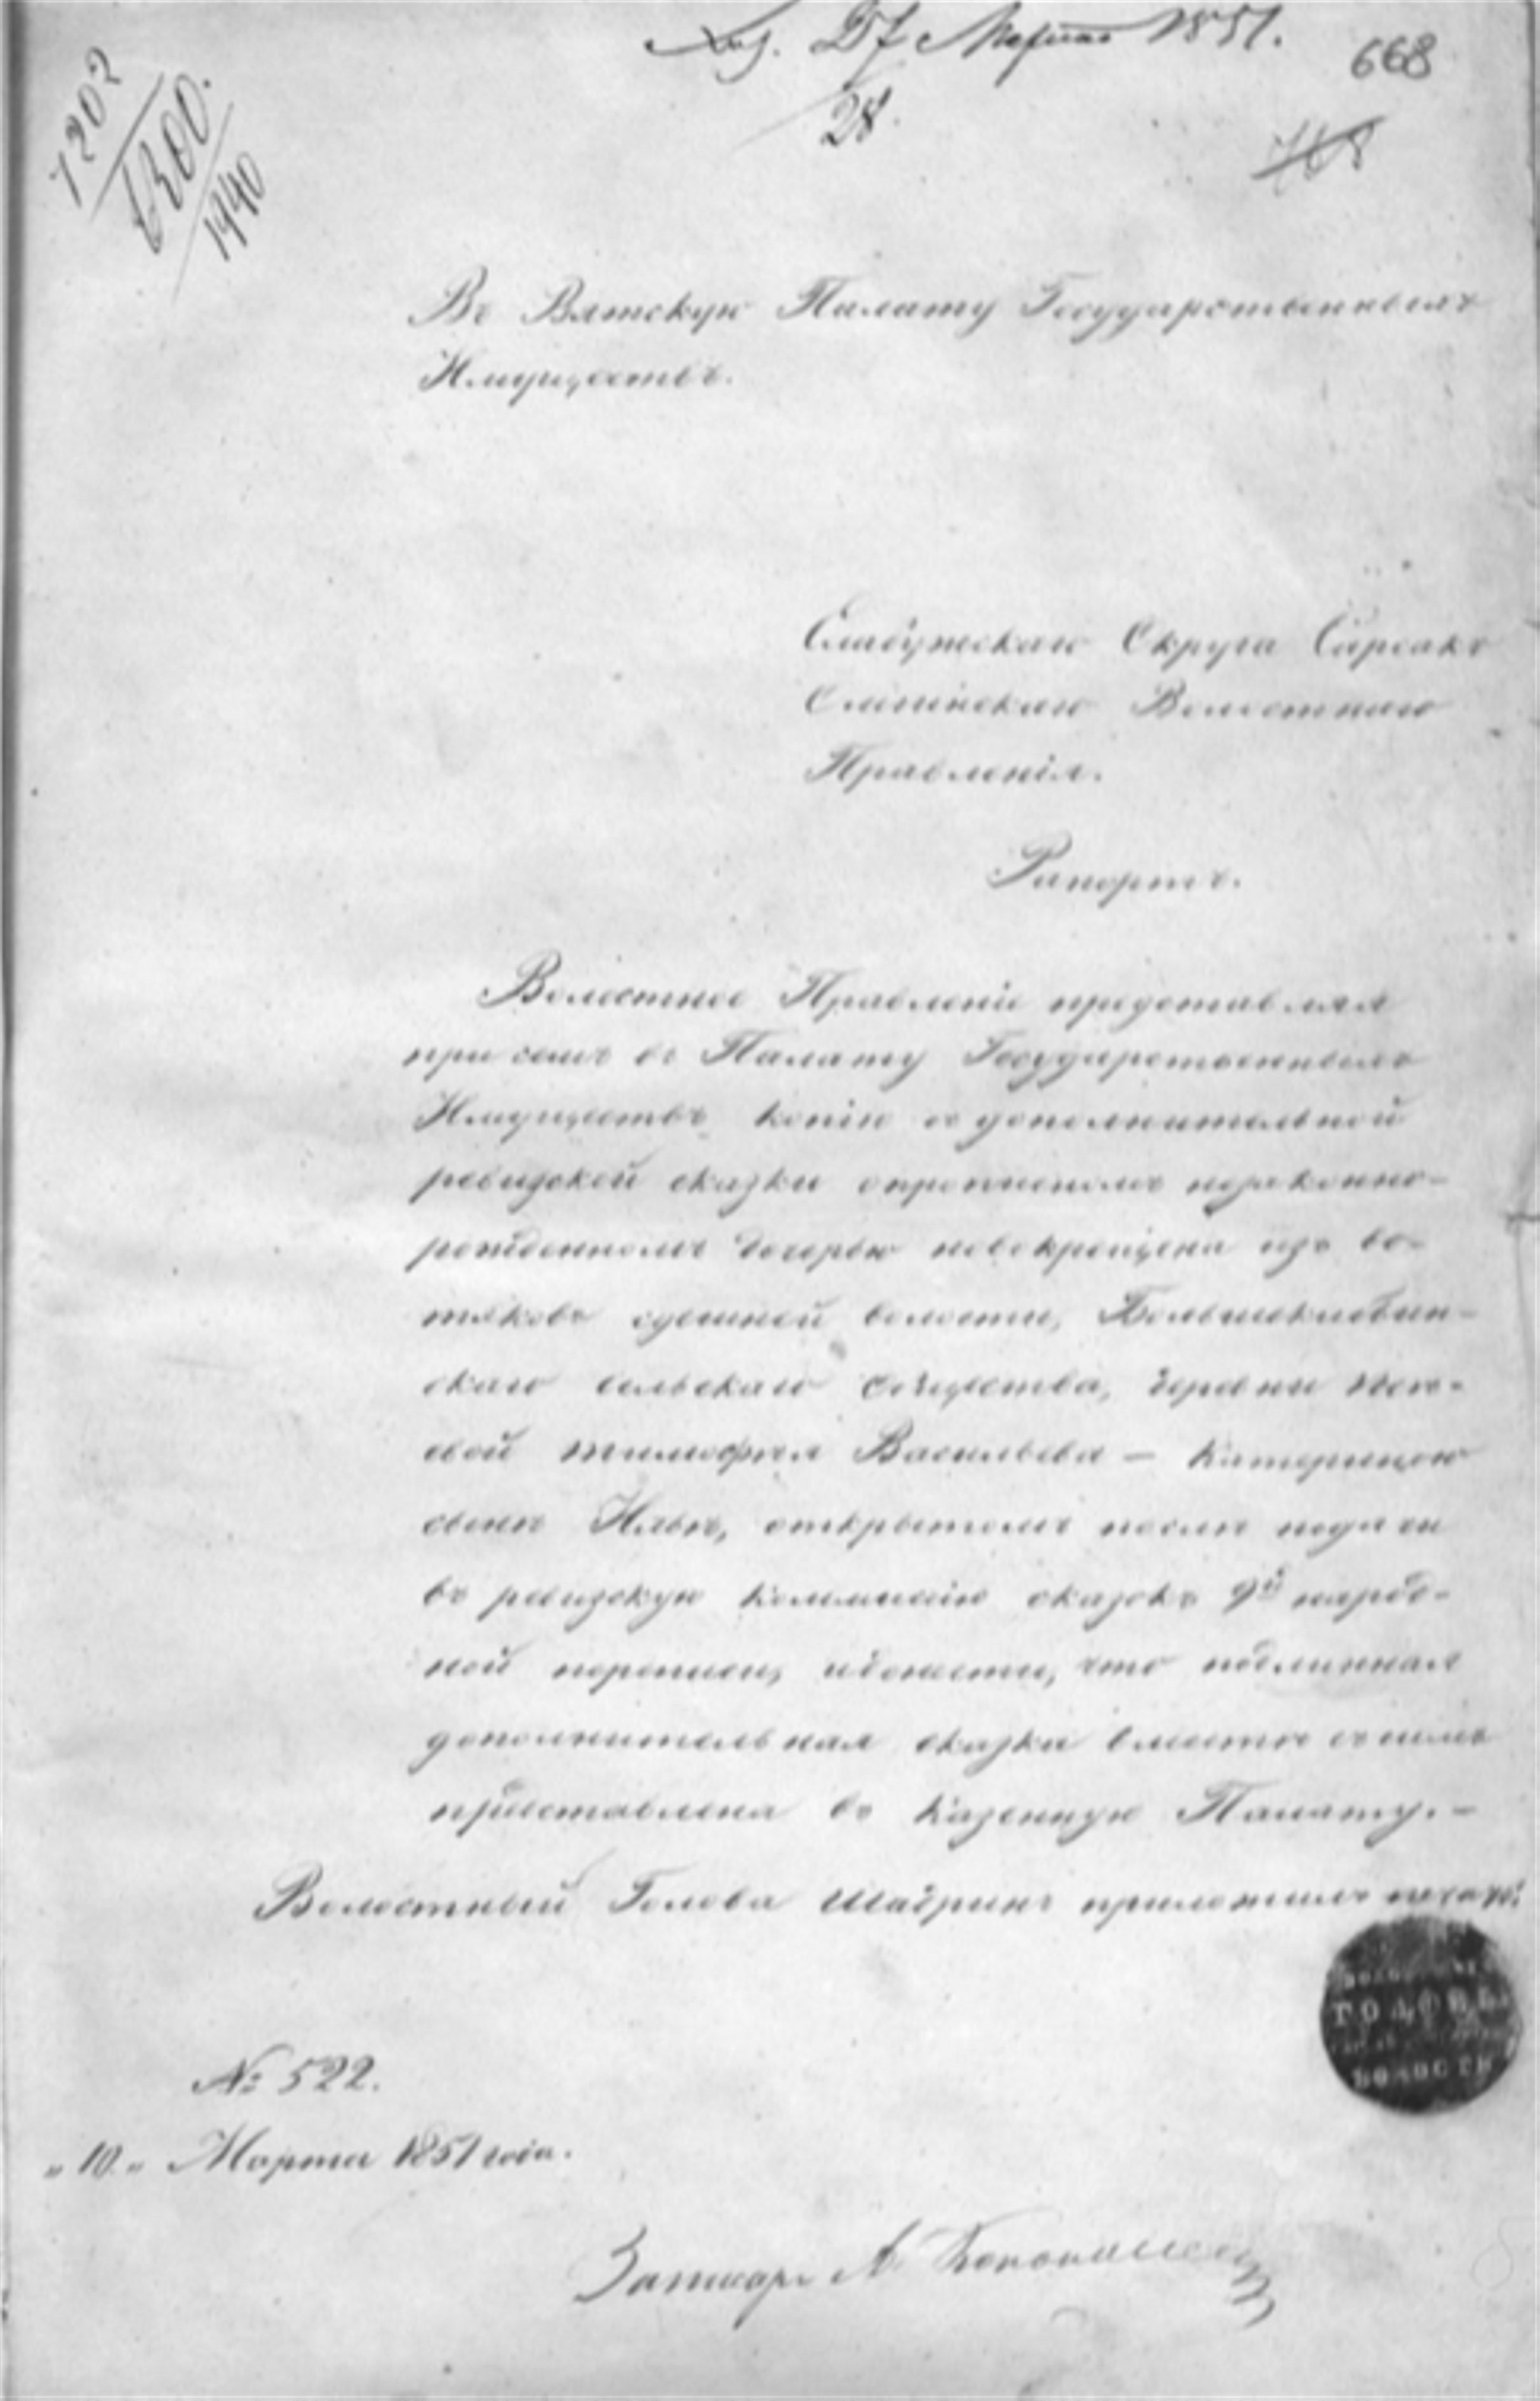 27 Марта 1851.
668
28.
1202
1300.
1440
Въ Вятскую Палату Государственныхъ
Имуществъ.
Елабужскаго Округа Сарсакъ
Омгинскаго Волостнаго
Правленія.
Рапортъ.
Волостное Правленіе представляя
при семъ въ Палату Государственныхъ
Имуществъ копію съ дополнительной
ревизской сказки о прописномъ незаконно-
рожденномъ дочерью новокрещена изъ во-
тяковъ здешней волости,
скаго сельскаго общества, деревни
Тимофея Васильева – Катериною
сыне Илье, открытомъ после подачи
въ ревизскую Коммисію сказокъ 9й народ-
ной переписи, и донести, что подлинная
дополнительная сказка вместе съ симъ
представлена въ Казенную Палату.–
Волостный Голова Шабринъ приложилъ печать.
ГОЛОВЫ
ВОЛОСТИ
№ 522.
„10„ Марта 1851 года.
А.